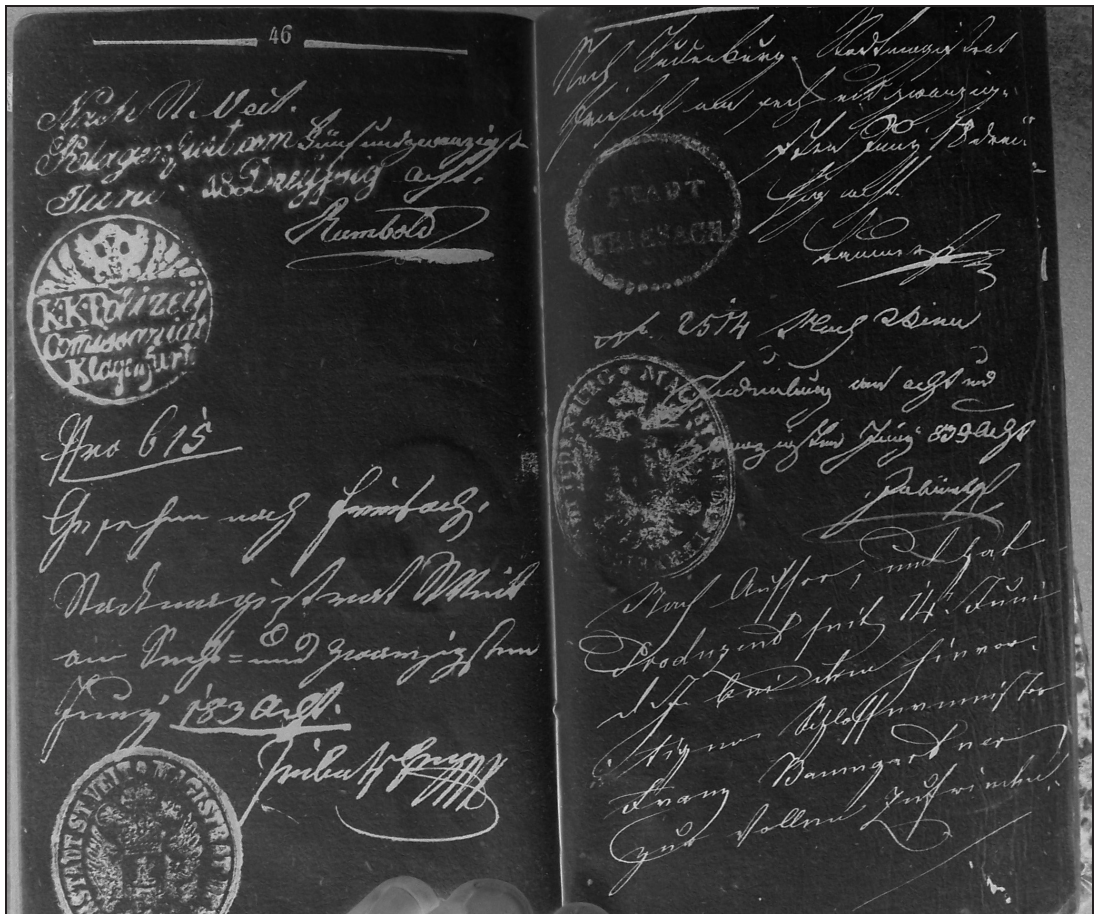 46
Nach St. Veit.
Klagenfurt am Fünfundzwanzigst
Juni 18 Dreißig acht.
Rumbold
K.K. Polizeÿ
Comissariat
Klagenfurt
Nro 615
Gesehen nach Friesach,
Stadtmagistrat St Veit
am Sechs= und zwanzigsten
Junÿ 183 Acht.
STADT ST VEIT MAGISTRAT
Nach Judenburg. Stadtmagistrat
Friesach am sech und zwanzig-
sten Juny 18 drei-
ßig acht.
STADT
FRIESACH
2514 Nach Wien
Judenburg am acht und
zwanzigsten Juny 839 Acht
JUDENBURG MAGISTRAT
Nach Aussee, und hat
Produzent seit 14t Juni
d. J. bei dem hieror-
tigen Schlossermeister
Franz Baumgartner
zur vollen Zufrieden-